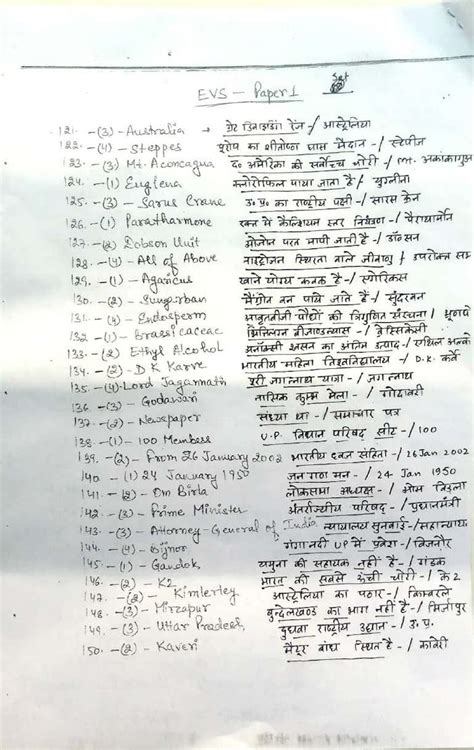 EVS - Paper 1
121. -(3)- Australia → ग्रेट डिवाइडिंग रेंज -/ आस्ट्रेलिया
122. -(4)- Steppes यूरोप का शीतोष्ण घास मैदान -/ स्टेपीज
123. -(3) Mt. Aconcagua द० अमेरिका की सर्वोच्च चोटी -/ Mt.
124. -(1) Euglena क्लोरोफिल पाया जाता है / युग्लीना
125. -(3)- Sarus Crane उ. प्र. का राष्ट्रीय पक्षी - / सारस क्रेन
126. -(1) Parathormone रक्त में कैल्शियम स्तर नियंत्रण -
127. -(2) Dobson Unit ओजोन परत मापी जाती है - / डॉबसन
128. -(4)- All of Above नाइट्रोजन स्थिरता वाले जीवाणु /
129. -(1)- Agaricus खाने योग्य कवक है -/
130. -(2)- Sundarban मैंग्रोव वन पाये जाते हैं -/ सुंदरवन
131. -(4)- Endosperm
132 -(1)- Brassicaceae
133. -(2) Ethyl Alcohol
134. -(2) - D K Karve भारतीय महिला विश्वविद्यालय -/ D.K. कर्वे
135. -(4) Lord Jagannath पुरी जगन्नाथ यात्रा -/ जगन्नाथ
136 -(3)- Godawari नासिक कुम्भ मेला -/ गोदावरी
137. -(2)- Newspaper संध्या था - / समाचार पत्र
138. -(1)- 100 Members U.P. विधान परिषद सीट -/100
139. -(2)- From 26 January 2002 भारतीय ध्वज संहिता -/26 Jan 2002
140 -(1) 24 January 1950 जन गण मन -/ 24 Jan 1950
141 -(2)- Om Birla लोकसभा अध्यक्ष -/ ओम बिड़ला
142. -(3)- Prime Minister अंतर्राज्यीय परिषद -/ प्रधानमंत्री
143. -(3)- Attorney-General of India न्यायालय सुनवाई -/
144. -(4)- Bijnor गंगा नदी UP में प्रवेश -/ बिजनौर
145. -(1)- Gandak यमुना की सहायक नहीं है -/ गंडक
146. -(2)- K2 भारत की सबसे ऊँची चोटी -/ के 2
147. -(2)- Kimberley आस्ट्रेलिया का पठार -/ किम्बरले
148. -(3)- Mirzapur बुन्देलखण्ड का भाग नहीं है -/ मिर्जापुर
149. -(3)- Uttar Pradesh दुधवा राष्ट्रीय उद्यान -/ उ. प्र.
150. -(2)- Kaveri मैटूर बांध स्थित है -/ कावेरी